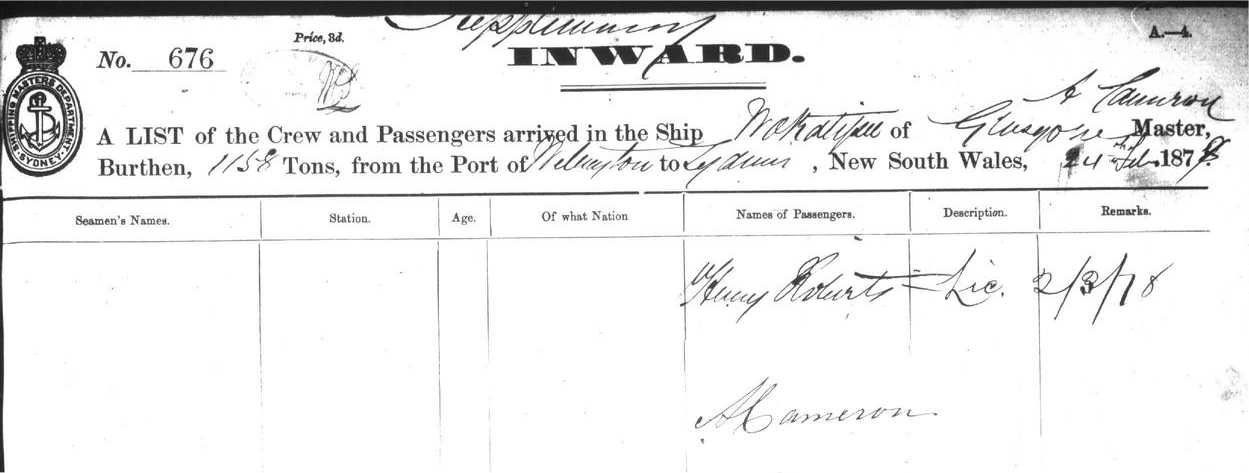 Supplementary
Price, 3d.
A.—4.
No. 676
INWARD.
SHIPPING MASTERS DEPARTMENT
SYDNEY
A Cameron
A LIST of the Crew and Passengers arrived in the Ship Wakatipu of Glasgow Master,
Burthen, 1158 Tons, from the Port of Wellington to Sydney, New South Wales, 24th Feb. 1878.
Seamen's Names. Station. Age. Of what Nation Names of Passengers. Description. Remarks.
Henry Roberts - Lic. 2/3/78
A Cameron